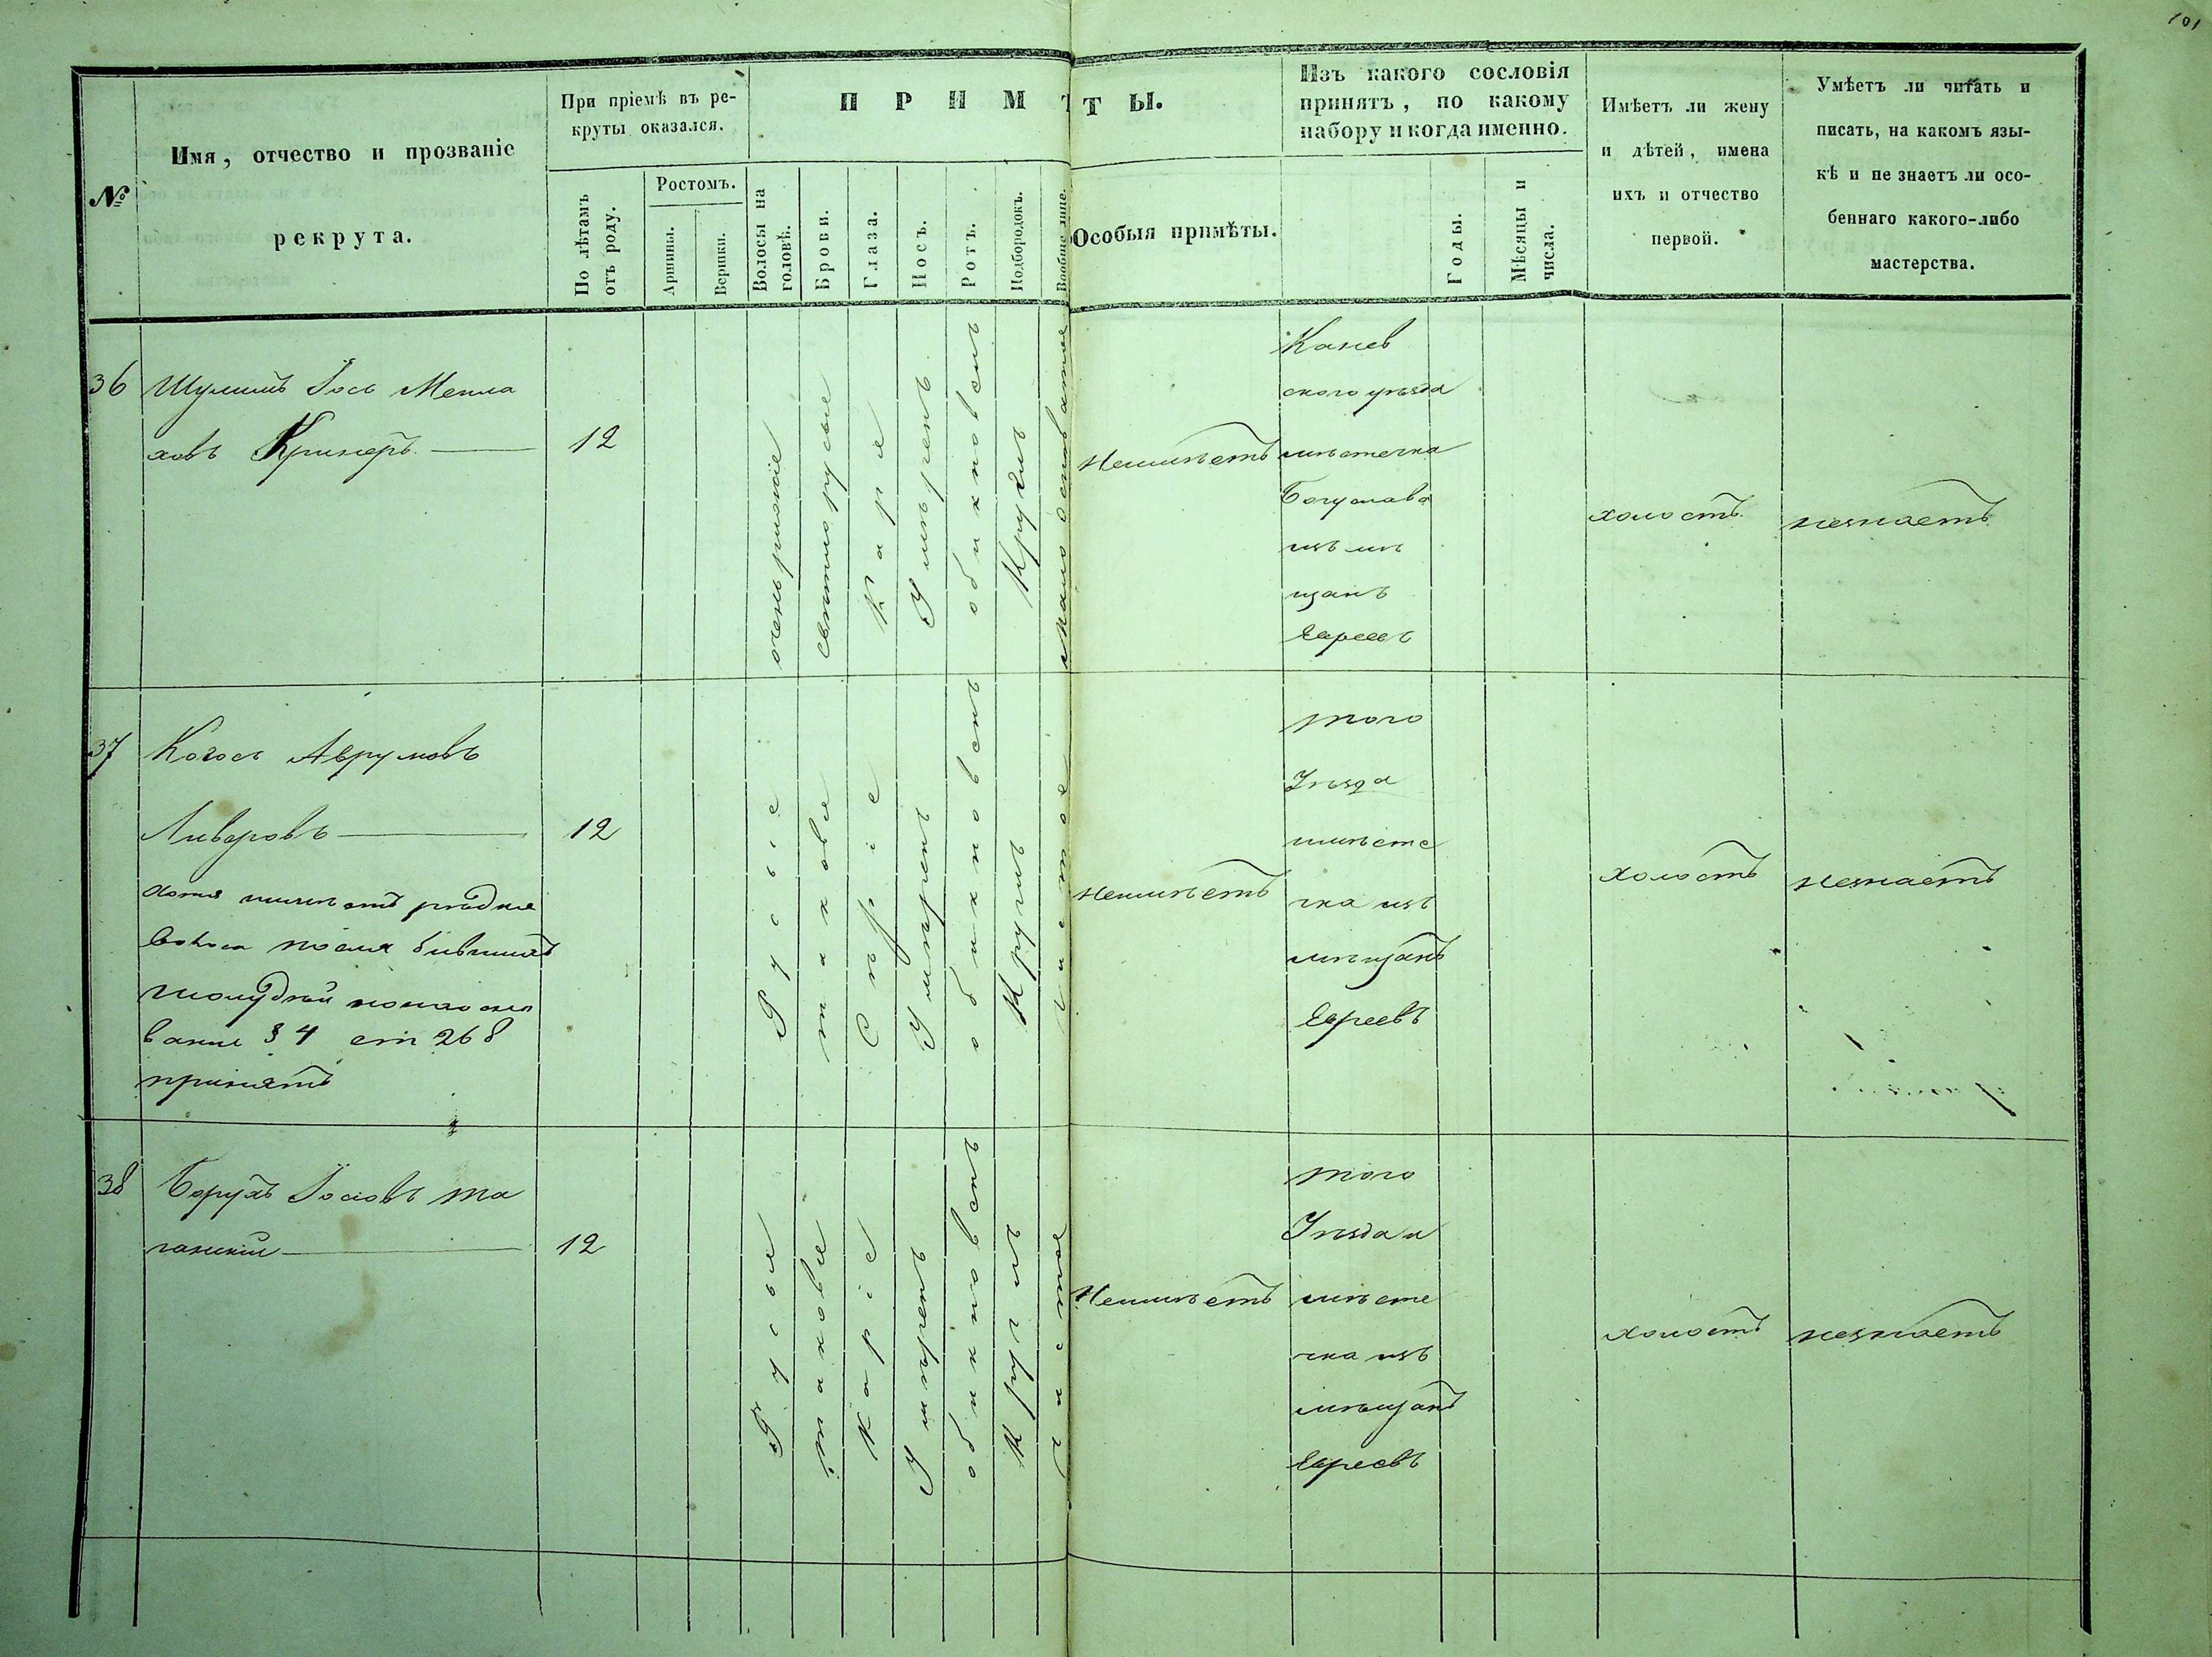 101
№
Имя, отчество и прозваніе
рекрута.
При пріемѣ въ ре-
круты оказался.
По лѣтамъ
отъ роду.
Ростомъ.
Аршины.
Вершки.
ПРИМѢТЫ.
Волосы на
головѣ.
Брови.
Глаза.
Носъ.
Ротъ.
Подбородокъ.
Вообще лице.
Особыя примѣты.
Изъ какого сословія
принятъ, по какому
набору и когда именно.
Годы.
Мѣсяцы и
числа.
Имѣетъ ли жену
и дѣтей, имена
ихъ и отчество
первой.
Умѣетъ ли читать и
писать, на какомъ язы-
кѣ и не знаетъ ли осо-
беннаго какого-либо
мастерства.
36
Шулимъ Іось Менла
ховъ Кримеръ
12
очень рижiе
светлорусые
Карiе
Умѣренъ
обикновенъ
Круглъ
мало
Неимѣетъ
Канев
ского уѣзда
мѣстечка
Богуслава
изъ мѣ
щанъ
Евреевъ
холостъ
незнаетъ
37
Когось Аврумовъ
Ливеровъ
хотя имѣетъ рѣдкие
волоса после бывшихъ
на осно
ваніи § 4 ст 268
принятъ
12
Русые
таковые
Сѣріе
Умѣренъ
обикновенъ
Круглъ
чистое
Неимѣетъ
того
Уѣзда
имѣсте
чка изъ
мѣщанъ
Евреевъ
холостъ
незнаетъ
38
Борухъ Іосiовъ та
ганскiй
12
Русые
таковые
Каріе
Умѣренъ
обикновенъ
Круглъ
чистое
Неимѣетъ
того
Уѣзда и
мѣсте
чка изъ
мѣщанъ
Евреевъ
холостъ
незнаетъ